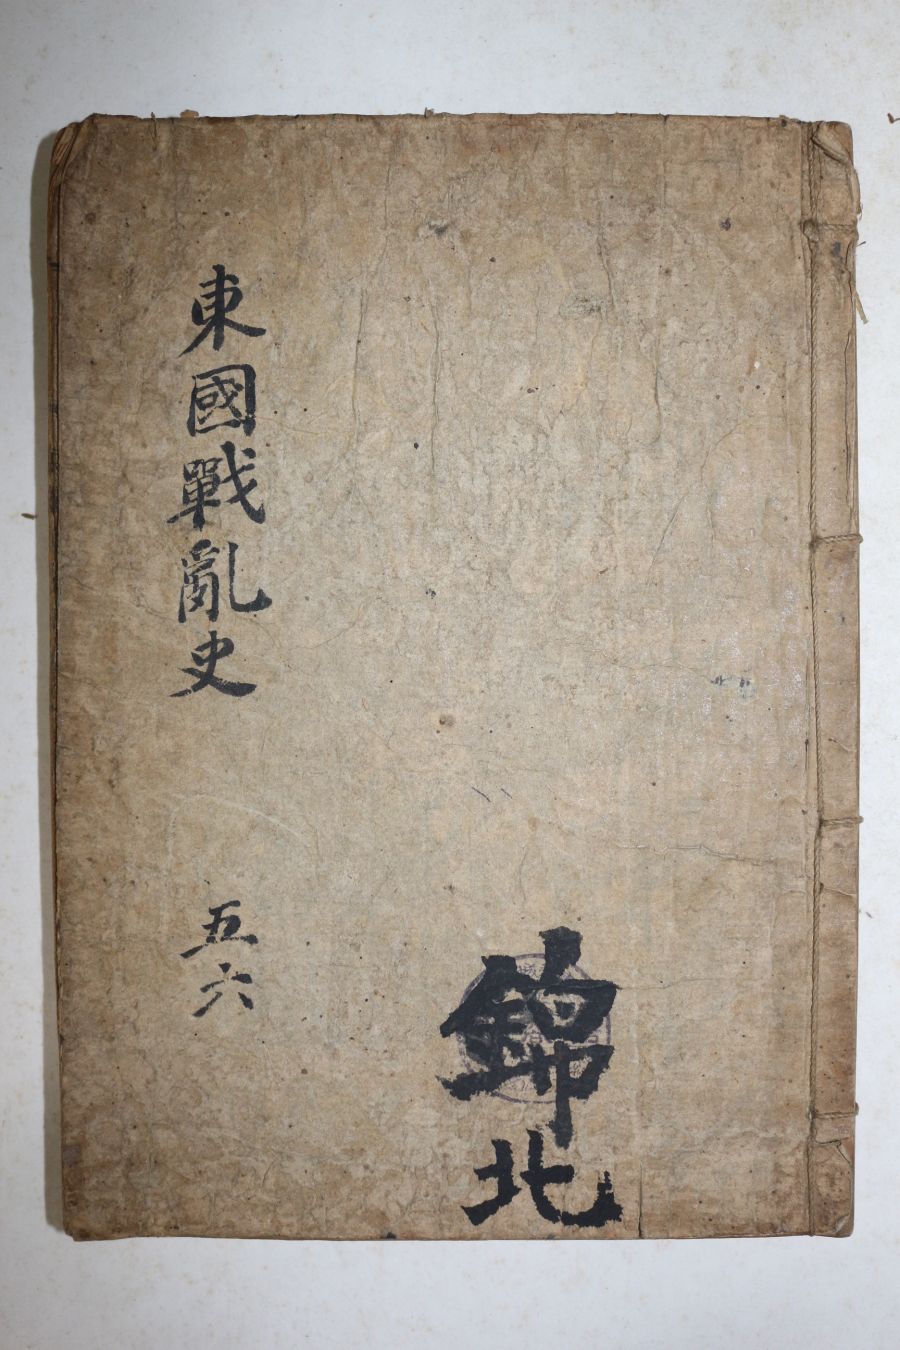 東國戰亂史
五六
錦北